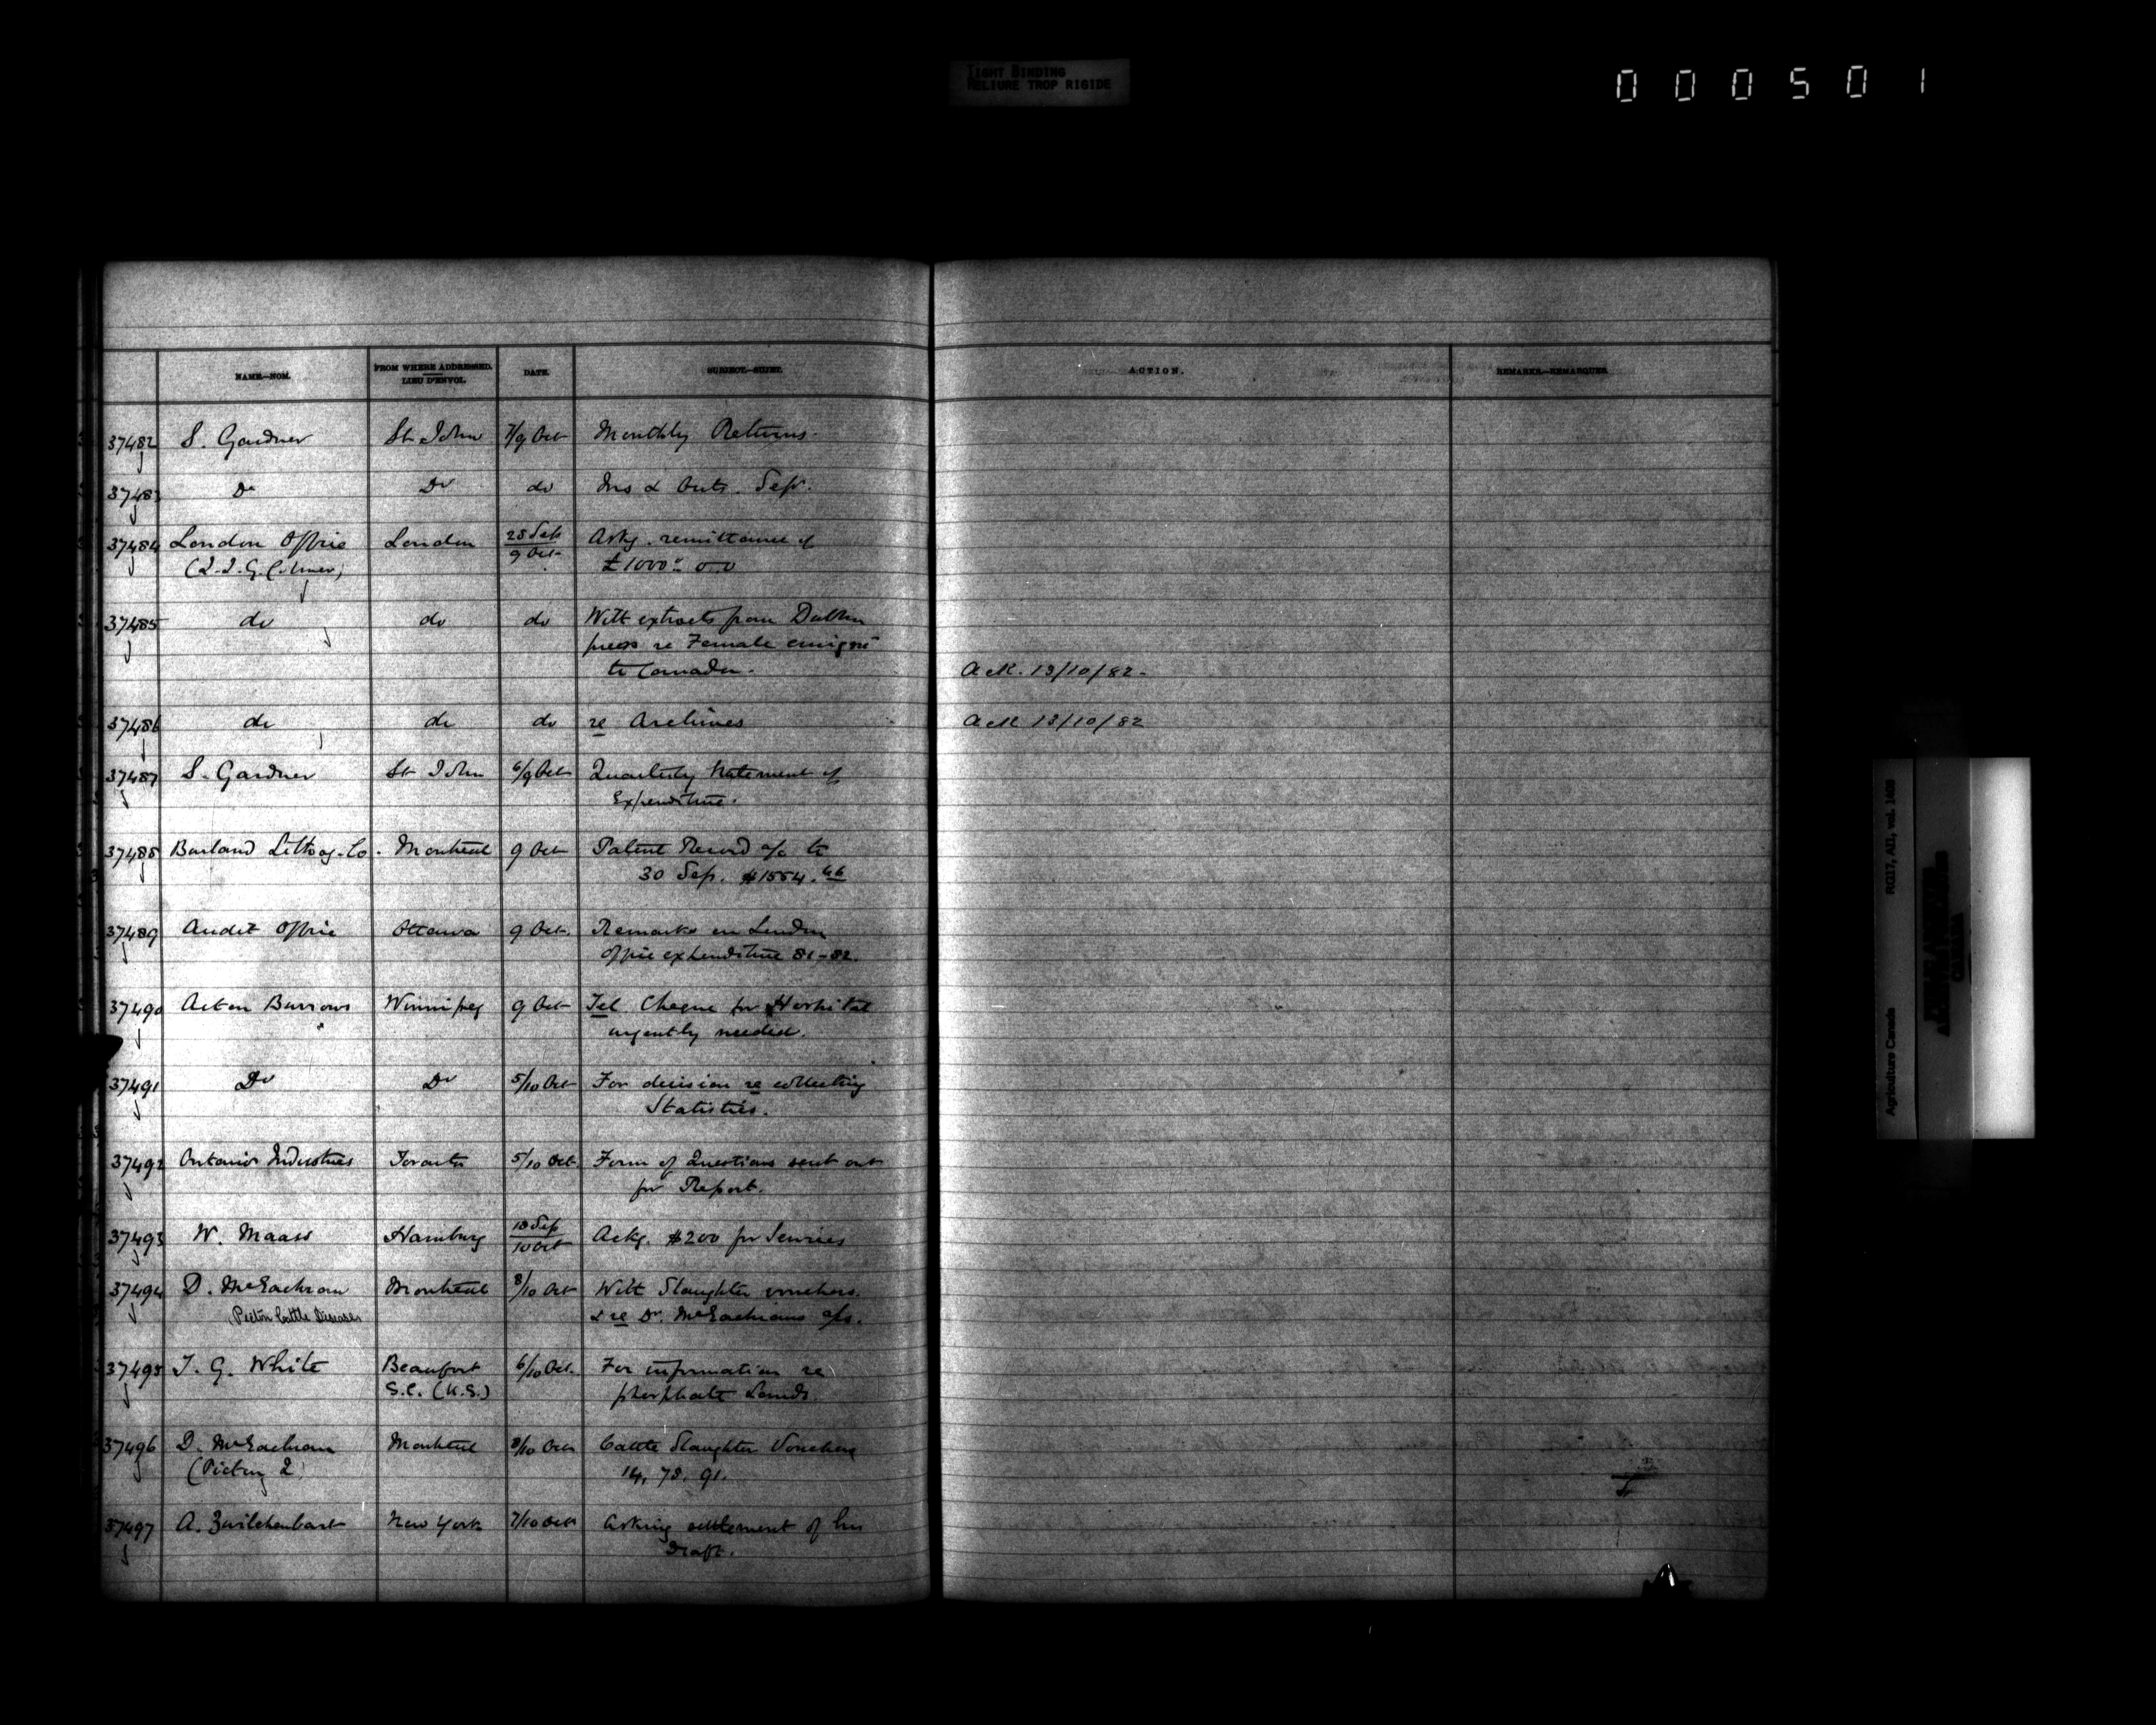 TIGHT BINDING
RELIURE TROP RIGIDE
000501
NAME.—NOM.
FROM WHERE ADDRESSED.
LIEU D'ENVOI.
DATE.
SUBJECT.—SUJET.
ACTION.
REMARKS.—REMARQUES.
37482 S. Gardner St John 7/9 Oct Monthly Returns.
37483 Do Do do Ins & Outs. Sep.
37484 London Office London 28 Sep Askg. remittance of
9 Oct £1000
37485 do do do With extracts from Dublin
press re Female emign
to Canada. Ack. 13/10/82.
37486 do do do re Archives Ack 13/10/82
37487 S. Gardner St John 6/9 Oct Quarterly Statement of
Expenditure.
37488 Burland Lithog. Co. Montreal 9 Oct Patent Record a/c to
30 Sep. $1554.66
37489 Audit Office Ottawa 9 Oct. Remarks on London
Office expenditure 81-82.
37490 Acton Burrows Winnipeg 9 Oct Tel Cheque for Hospital
urgently needed.
37491 Do Do 5/10 Oct For decision re collecting
Statistics.
37492 Ontario Industries Toronto 5/10 Oct. Form of Questions sent out
for Report.
37493 W. Maass Hamburg 18 Sep
10 Oct Ackg. $200 for Services
37494 D. McEachran Montreal 8/10 Oct With Slaughter vouchers.
Pictou Cattle Diseases & re Dr. McEachrans a/c.
37495 T. G. White Beaufort 6/10 Oct. For information re
S.C. (U.S.) phosphate Lands.
37496 D. McEachran Montreal 8/10 Oct Cattle Slaughter Vouchers
14, 78, 91.
37497 A. Zwilchenbart New York 7/10 Oct Asking settlement of his
Draft.
Agriculture Canada RG17, AII, vol. 1498